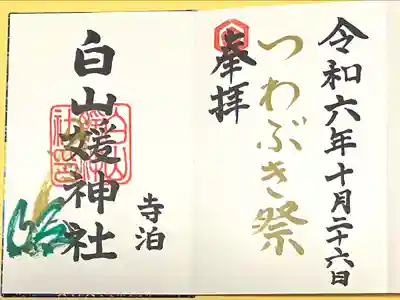 令和六年十月二十六日
つわぶき祭
奉拝
白山媛神社
寺泊